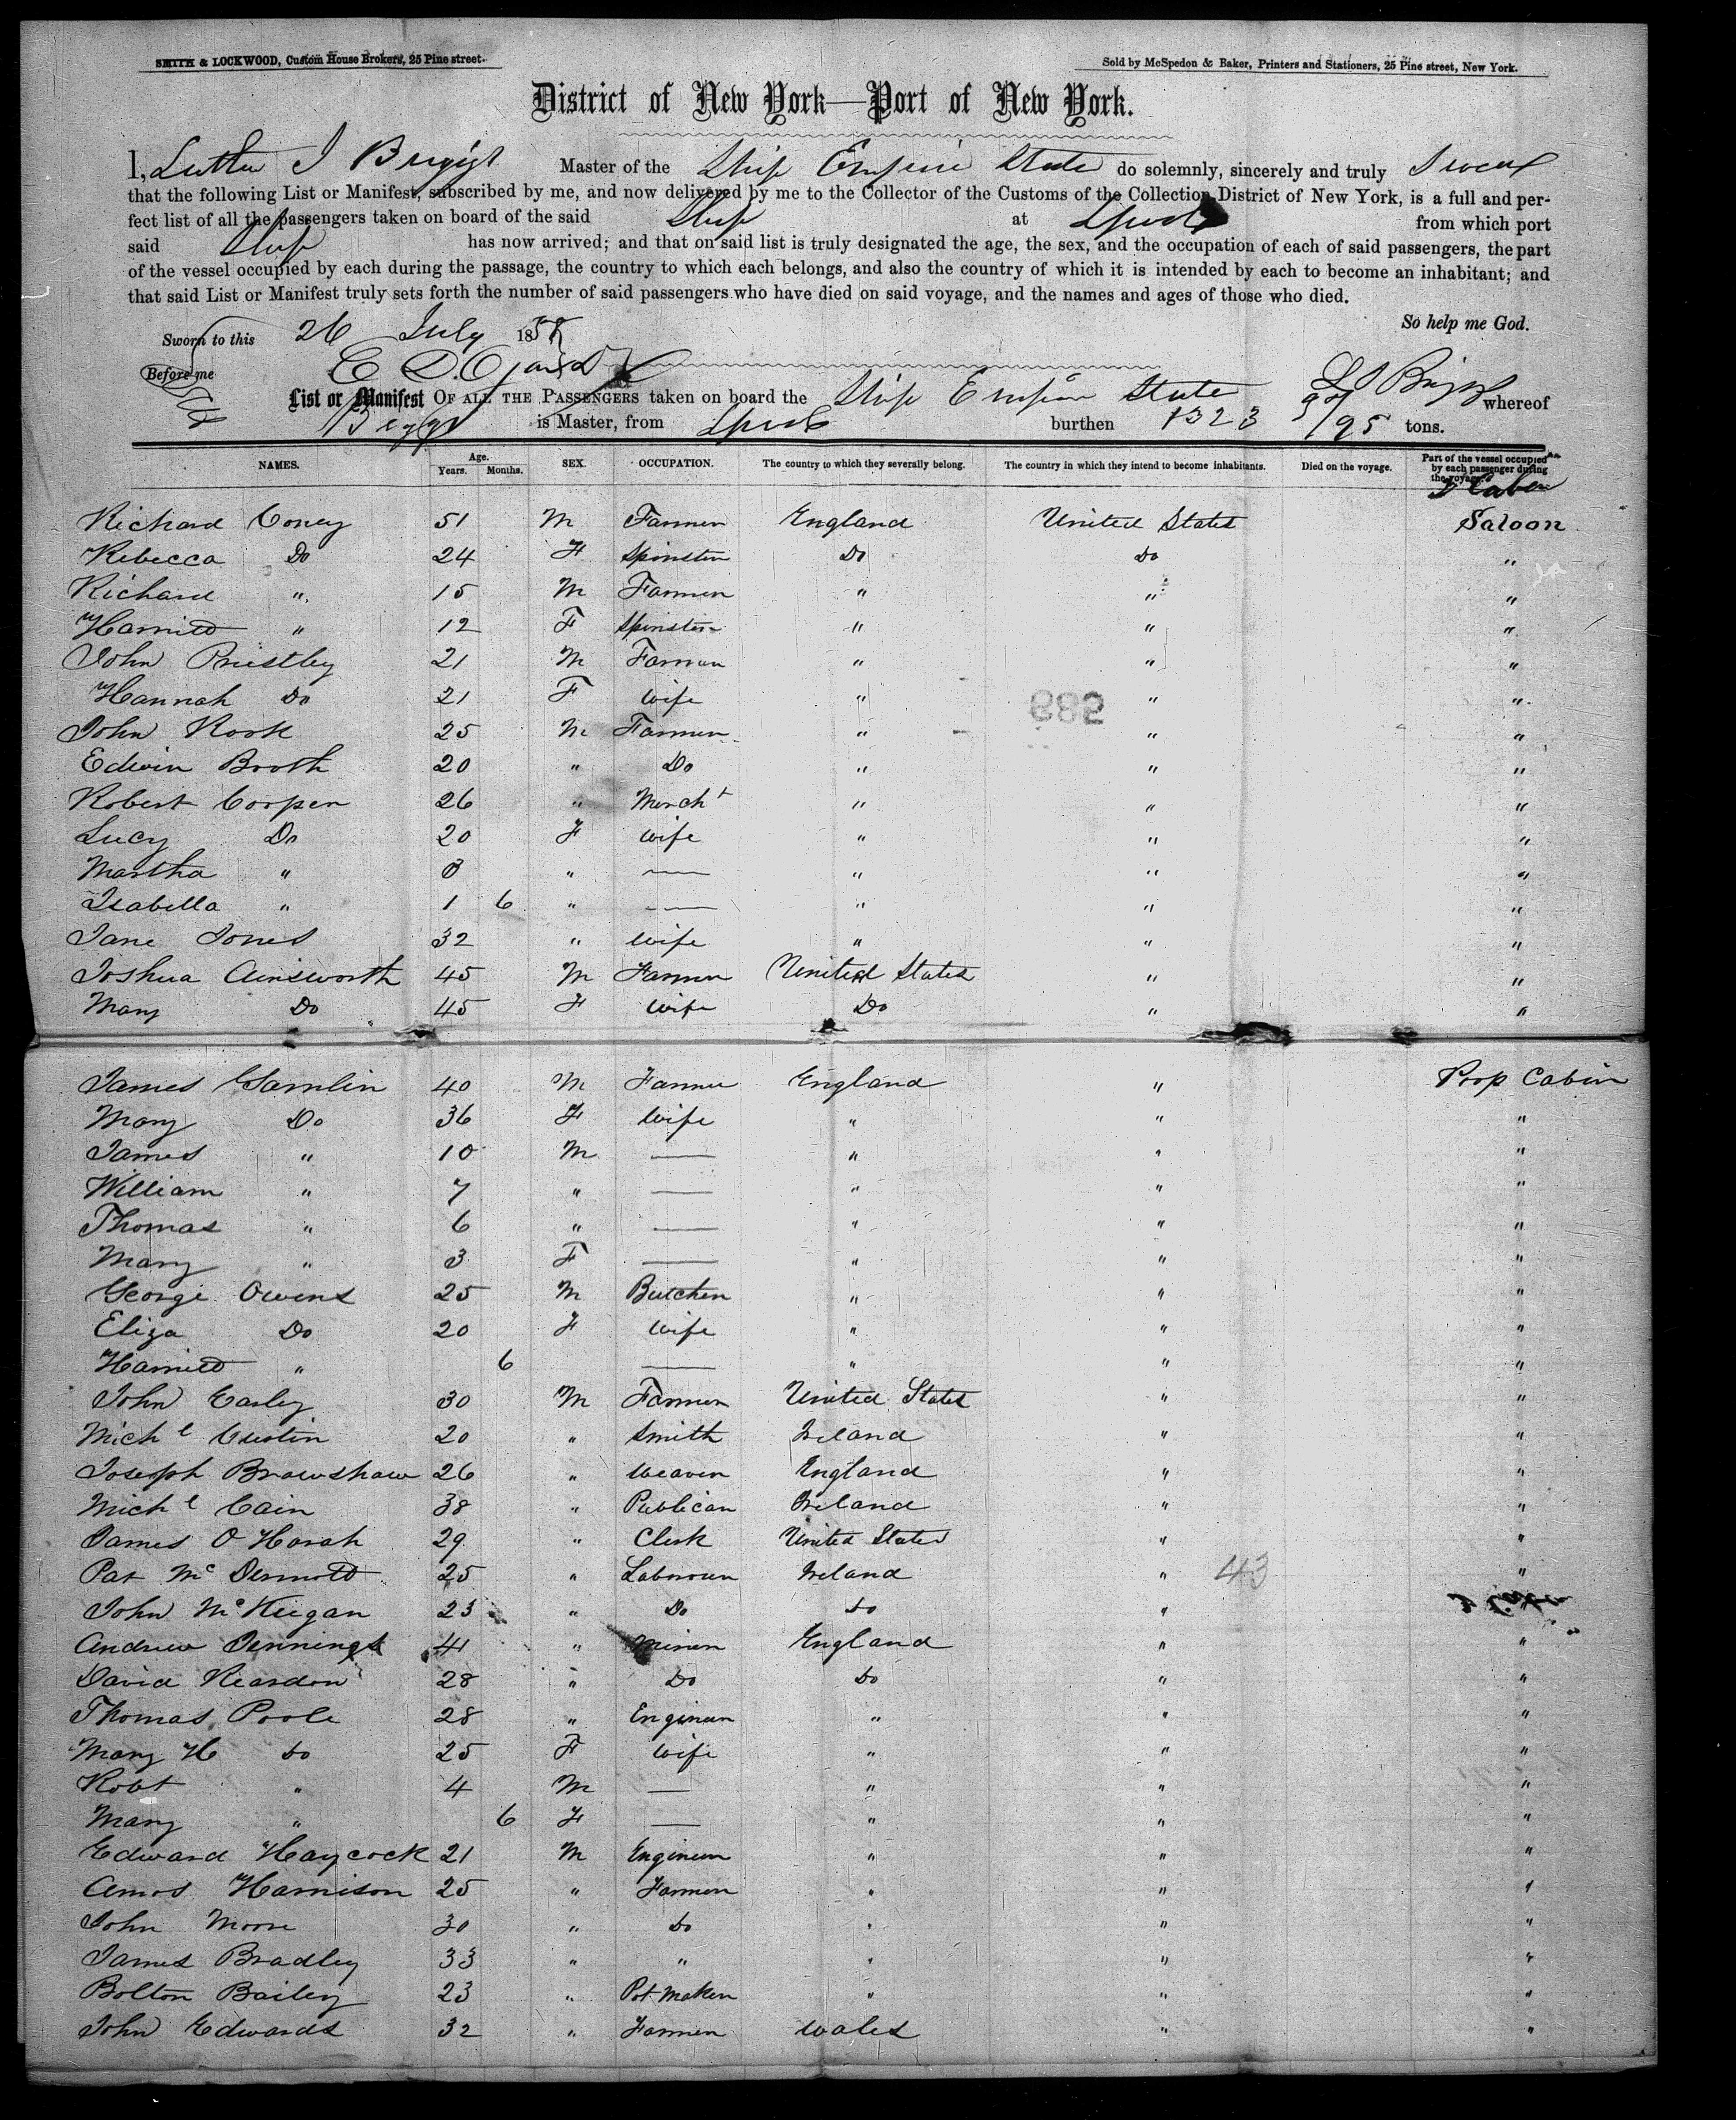 SMITH & LOCKWOOD, Custom House Brokers, 25 Pine street.
Sold by McSpedon & Baker, Printers and Stationers, 25 Pine street, New York.
District of New York—Port of New York.
I, Luther J Briggs Master of the Ship Empire State do solemnly, sincerely and truly swear
that the following List or Manifest, subscribed by me, and now delivered by me to the Collector of the Customs of the Collection District of New York, is a full and per-
fect list of all the passengers taken on board of the said Ship at Lpool from which port
said Ship has now arrived; and that on said list is truly designated the age, the sex, and the occupation of each of said passengers, the part
of the vessel occupied by each during the passage, the country to which each belongs, and also the country of which it is intended by each to become an inhabitant; and
that said List or Manifest truly sets forth the number of said passengers who have died on said voyage, and the names and ages of those who died.
So help me God.
Sworn to this 26 July 18
Before me L J Briggs
List or Manifest OF ALL THE PASSENGERS taken on board the Ship Empire State whereof
Briggs is Master, from Lpool burthen 1323 /95 tons.
NAMES. Age. Years. Months. SEX. OCCUPATION. The country to which they severally belong. The country in which they intend to become inhabitants. Died on the voyage. Part of the vessel occupied by each passenger during the voyage.
Cabin
Richard Coney 51 M Farmer England United States Saloon
Rebecca Do 24 F Spinster Do Do "
Richard " 15 M Farmer " " "
Harriett " 12 F Spinster " " "
John Priestley 21 M Farmer " " "
Hannah Do 21 F Wife " " "
882
John Rook 25 M Farmer " " "
Edwin Booth 20 " Do " " "
Robert Cooper 26 " Mercht " " "
Lucy Do 20 F Wife " " "
Martha " 3 " — " " "
Isabella " 1 6 " — " " "
Jane Jones 32 " Wife " " "
Joshua Ainsworth 45 M Farmer United States " "
Mary Do 45 F Wife Do " "
James Gamlin 40 M Farmer England " Poop Cabin
Mary Do 36 F Wife " " "
James " 10 M — " " "
William " 7 " — " " "
Thomas " 6 " — " " "
Mary " 3 F — " " "
George Owens 25 M Butcher " " "
Eliza Do 20 F Wife " " "
Harriett " 6 — " " "
John Earley 30 M Farmer United States " "
Michl Custin 20 " Smith Ireland " "
Joseph Brawshaw 26 " Weaver England " "
Michl Cain 38 " Publican Ireland " "
James O Harah 29 " Clerk United States " "
Pat McDermott 25 " Labourer Ireland " "
43
John McKeegan 23 " Do Do " "
Andrew Jennings 41 " Miner England " "
David Reardon 28 " Do Do " "
Thomas Poole 28 " Engineer " " "
Mary H Do 25 F Wife " " "
Robt " 4 M — " " "
Mary " 6 F — " " "
Edward Haycock 21 M Engineer " " "
Amos Harrison 25 " Farmer " " "
John Moore 30 " Do " " "
James Bradley 33 " " " " "
Bolton Bailey 23 " Pot Maker " " "
John Edwards 32 " Farmer Wales " "